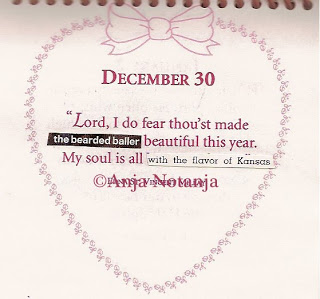 DECEMBER 30
"Lord, I do fear thou'st made
the bearded baller beautiful this year.
My soul is all with the flavor of Kansas
©Anja Notanja